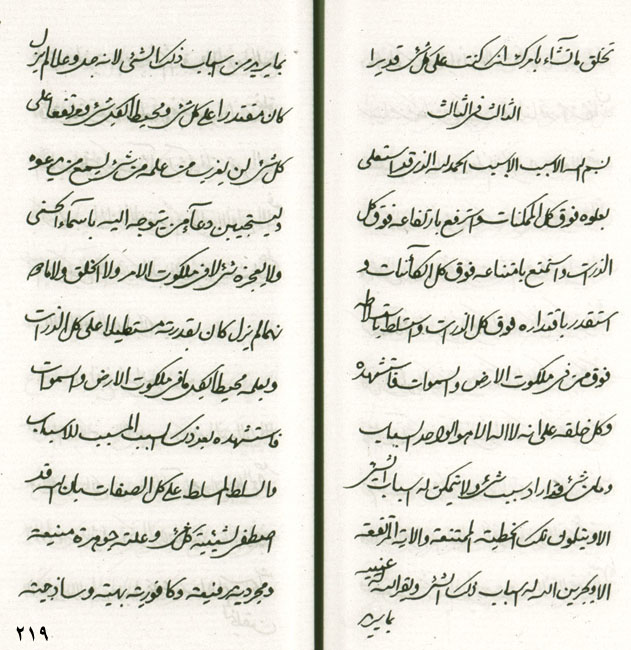 تخلق ما تشاء بامرك انك كنت على كل شئ قديرا
الثالث فى الثالث
بسم الله الاسبب الاسبب الحمد لله الذى قد استعلى
بعلوه فوق كل الممكنات واسترفع بارتفاعه فوق كل
الذرات واستمنع بامتناعه فوق كل الكائنات و
استقدر باقتداره فوق كل الذرات واستسلط
فوق من فى ملكوت الارض والسموات فاستشهده
وكل خلقه على انه لا اله الا هو الواحد السباب
شئ قد اراد بسبب شئ ولا يمكن له اسباب الشئ
الا ويتلون تلك الخطبة الممتنعة والاية المرتفعة
الا وليجرين الله له اسباب ذلك الشئ
بما يريد
بما يريد من اسباب ذلك الشئ لانه جل وعلا لم يزل
كان مقتدرا على كل شئ ومحيطا لكل شئ ومرتفعا على
كل شئ لن يعزب من علمه من شئ ليسمع من يدعوه
وليستجيبن دعآء من يتوجه اليه باسماء الحسنى
ولا يعجزه شئ لا فى ملكوت الامر ولا الخلق ولا ما
لم يزل كان بقدرته مستطيلا على كل الذرات
وبعلمه محيطا لكل ما فى ملكوت الارض والسموات
فاستشهده بعد ذلك لسبب المسبب للاسباب
والسلط المسلط على كل الصفات بان الله قد
اصطفى لشيئية كل شئ وعلته جوهرة منيعة
ومجردية رفيعة وكافورية بهية وساذجية
٢١٩